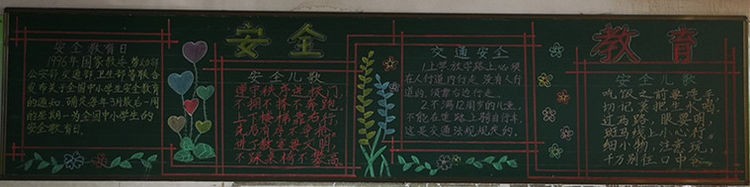 安全教育日
1996年国家教委劳动部
公安部交通部卫生部等联合
发布关于全国中小学生安全教育
的通知，确定每年3月最后一周
的星期一为全国中小学生的
安全教育日。
安全
安全儿歌
遵守秩序讲校门，
不拥不挤不奔跑。
上下楼梯靠右行，
先后有序不手抢，
进了教室要文明，
不涂桌椅不攀高
交通安全
1.上学放学路上必须
在人行道内行走，没有人行
道的，须靠右边走。
2.不满12周岁的儿童，
不能在道路上骑自行车，
这是交通法规规定的。
教育
安全儿歌
吃饭之前要洗手，
切记莫把生水喝，
过马路，眼要明，
斑马线上小心行。
细小物，注意玩，
千万别往口中含